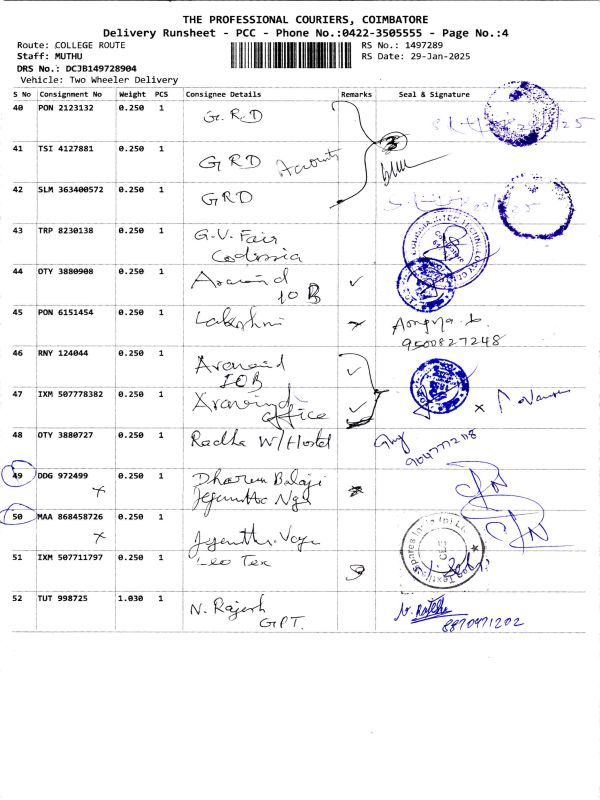 THE PROFESSIONAL COURIERS, COIMBATORE
Delivery Runsheet - PCC - Phone No.:0422-3505555 - Page No.:4
Route: COLLEGE ROUTE
RS No.: 1497289
Staff: MUTHU
RS Date: 29-Jan-2025
DRS No.: DCJB149728904
Vehicle: Two Wheeler Delivery
S No Consignment No Weight PCS Consignee Details Remarks Seal & Signature
40 PON 2123132 0.250 1 G.R.D
41 TSI 4127881 0.250 1 GRD Accounts 3
42 SLM 363400572 0.250 1 GRD
43 TRP 8230138 0.250 1 G.V. Fair
Codissia
44 OTY 3880908 0.250 1 Aravind ✓
IOB
45 PON 6151454 0.250 1 Lakshmi
9500827248
46 RNY 124044 0.250 1 Aravind ✓
IOB
47 IXM 507778382 0.250 1 Aravind ✓ x
office
48 OTY 3880727 0.250 1 Radha W/Hostel
49 DDG 972499 0.250 1 Balaji
x Ngr
50 MAA 868458726 0.250 1
x
51 IXM 507711797 0.250 1 Leo Tex
52 TUT 998725 1.030 1 N. Rajesh
GPT.
8870971202